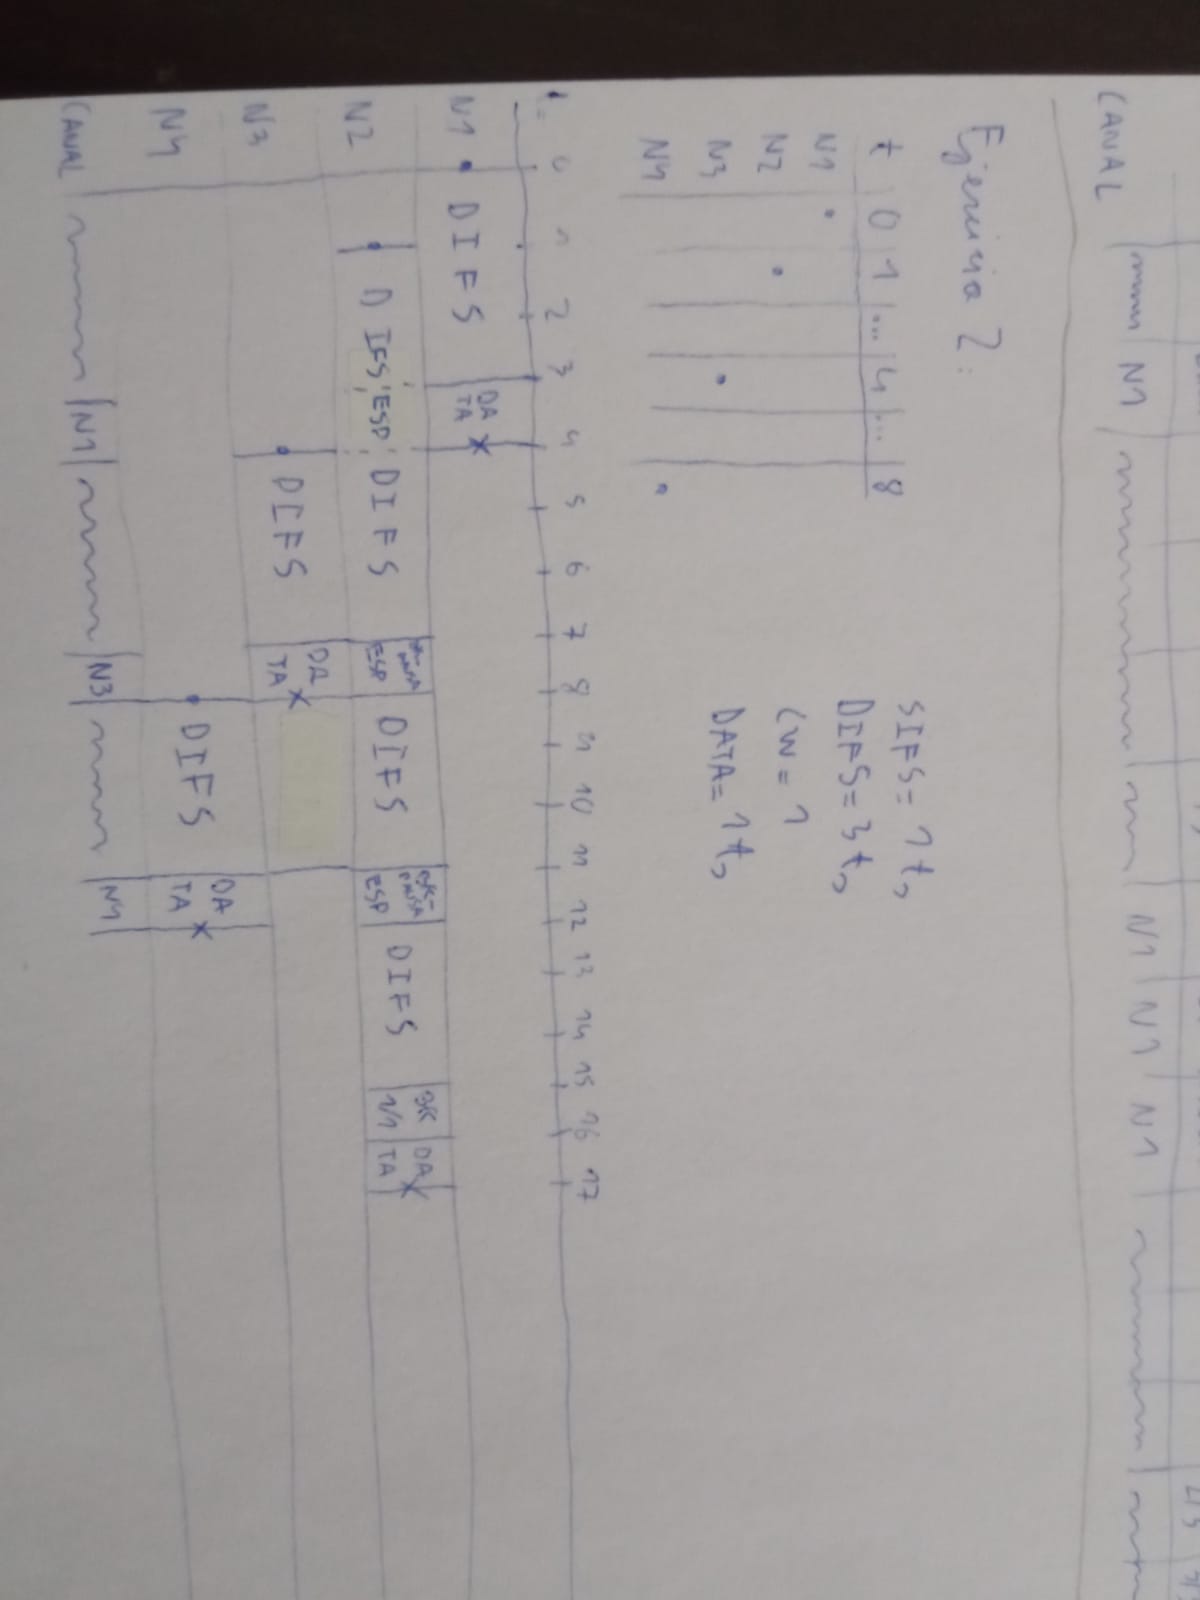 CANAL N1 N1 N1 N1
Ejercicio 2:
t 0 1 ... 4 ... 8
N1
N2
N3
N4
SIFS= 1 ts
DIFS= 3 ts
CW= 1
DATA= 1 ts
0 1 2 3 4 5 6 7 8 9 10 11 12 13 14 15 16 17
N1 DIFS DATA
N2 DIFS ESP DIFS ESP DIFS ESP DIFS BK 1/1 DATA
N3 DIFS DATA
N4 DIFS DATA
CANAL N1 N3 N4